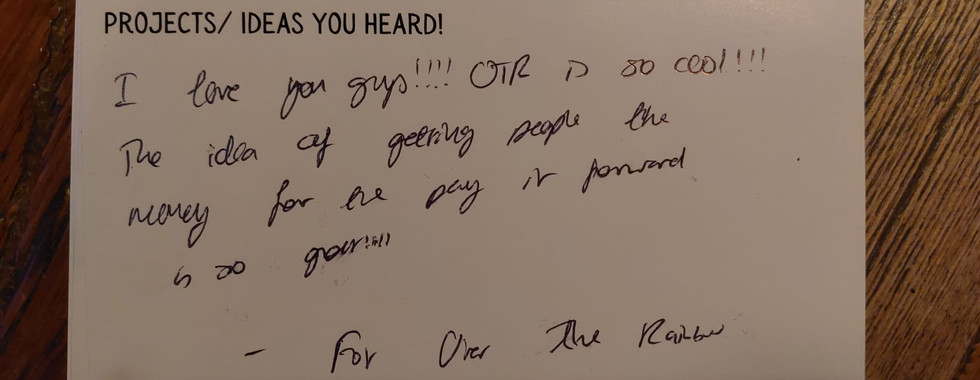 PROJECTS/ IDEAS YOU HEARD!
I love you guys!!!! OTR is so cool!!!
The idea of getting people the
money for the pay it forward
is so great!!!!
- For Over The Rainbow